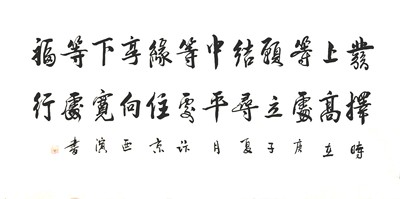 發上等願結中等緣享下等福
擇高處立尋平處住向寬處行
時在庚子夏月京正演書